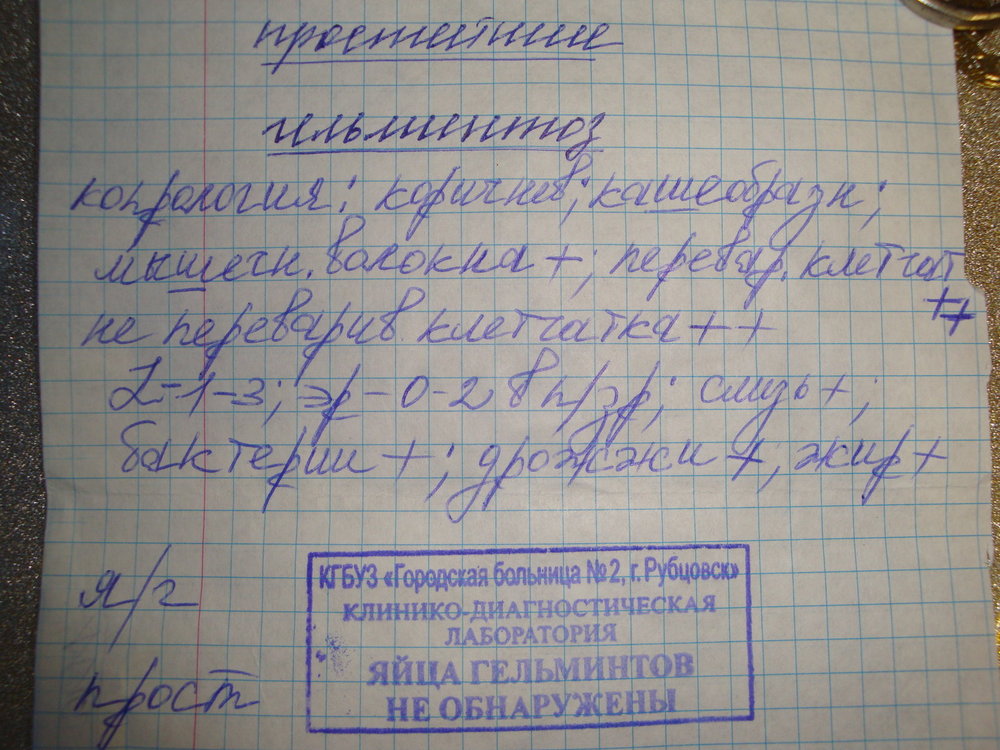 простейшие
гельминтоз
копрология: коричнев; кашеобразн;
мышечн. волокна +; перевар. клетчат
++
не переварив клетчатка ++
L-1-3; эр-0-2 в п/зр; слизь +;
бактерии +; дрожжи +, жир +
я/г
прост
КГБУЗ «Городская больница №2, г. Рубцовск»
КЛИНИКО-ДИАГНОСТИЧЕСКАЯ
ЛАБОРАТОРИЯ
ЯЙЦА ГЕЛЬМИНТОВ
НЕ ОБНАРУЖЕНЫ